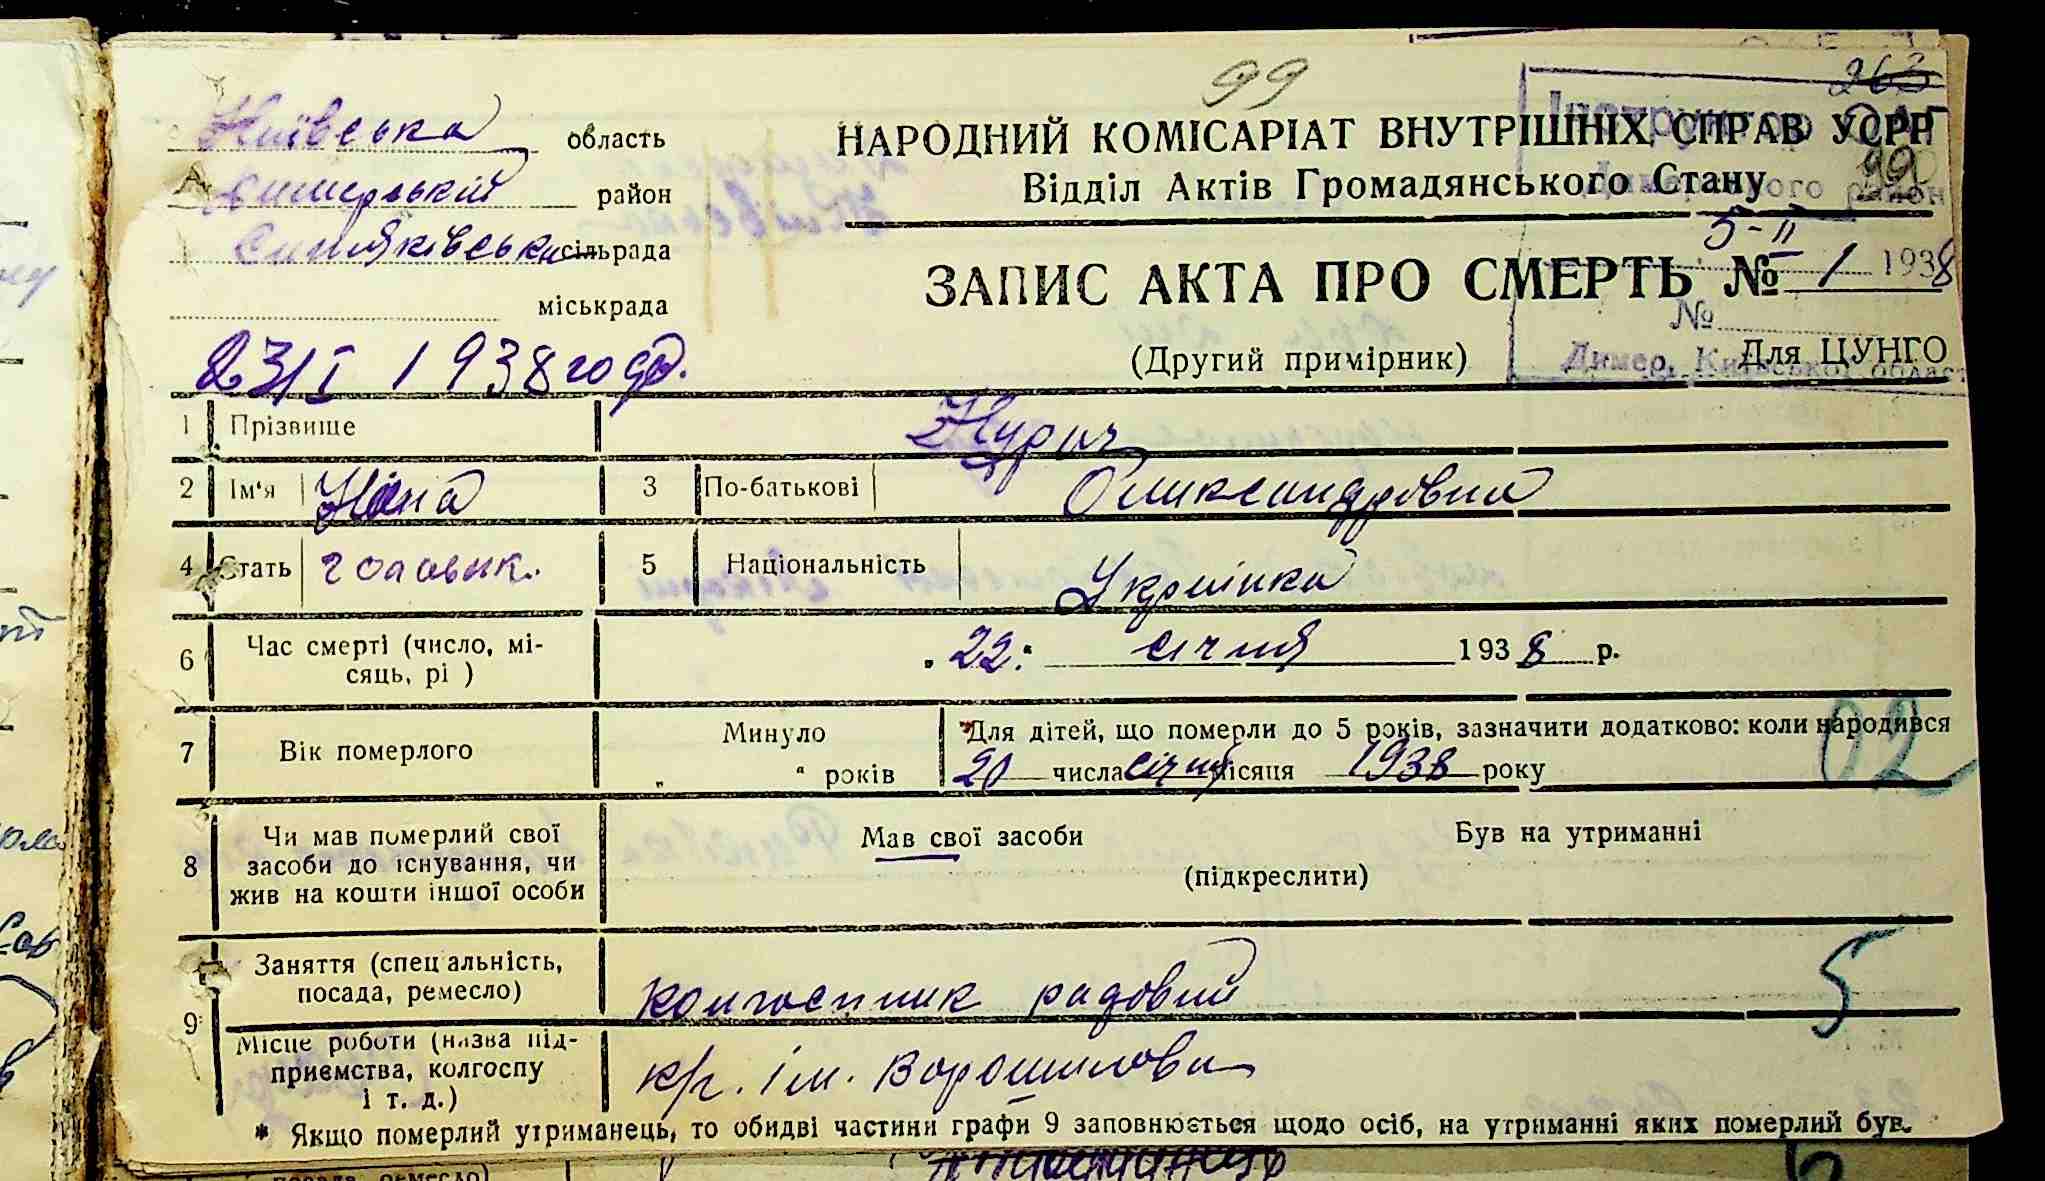 99
263
Київська область
НАРОДНИЙ КОМІСАРІАТ ВНУТРІШНІХ СПРАВ УСРР
Інструктор ЗАГГ
99
Димерський район
Відділ Актів Громадянського Стану
Димерського району
Синяківська сільрада
5-II
ЗАПИС АКТА ПРО СМЕРТЬ № 1 1938
міськрада
№
23/I 1938 году.
(Другий примірник)
Для ЦУНГО
Димер, Київської област
1 Прізвище
2 Ім'я Ніна 3 По-батькові Олександровна
4 Стать чоловік. 5 Національність Українка
6 Час смерті (число, мі-
сяць, рі ) „22" січня 1938 р.
7 Вік померлого Минуло „ " років
Для дітей, що померли до 5 років, зазначити додатково: коли народився
20 числа січня місяця 1938 року
02
8 Чи мав померлий свої
засоби до існування, чи
жив на кошти іншої особи
Мав свої засоби Був на утриманні
(підкреслити)
9 Заняття (спец альність,
посада, ремесло) колгоспник радовий
5
Місце роботи (назва під-
приємства, колгоспу
і т. д.) к/г. ім. Ворошилова
* Якщо померлий утриманець, то обидві частини графи 9 заповнюється щодо осіб, на утриманні яких померлий був.
посада, ремесло)